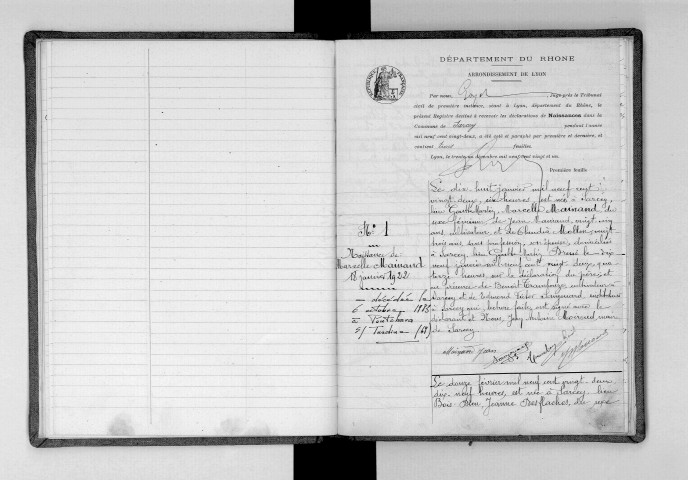 DÉPARTEMENT DU RHONE
ARRONDISSEMENT DE LYON
RÉPUBLIQUE FRANÇAISE
Par nous, Juge près le Tribunal
civil de première instance, séant à Lyon, département du Rhône, le
présent Registre destiné à recevoir les déclarations de Naissances dans la
Commune de Sarcey pendant l'année
mil neuf cent vingt-deux, a été coté et paraphé par première et dernière, et
contient feuilles
Lyon, le trentième décembre mil neuf cent vingt et un.
Première feuille
Le dix huit janvier mil neuf cent
vingt deux, six heures, est née à Sarcey,
lieu Marcelle Mainand, du
sexe féminin, de Jean Mainand, vingt cinq
ans, cultivateur et de Claudia vingt
trois ans, sans profession, son épouse, domiciliés
à Sarcey, lieu Dressé le dix
neuf janvier mil neuf cent vingt deux, qua-
torze heures, sur la déclaration du père, et
en présence de Benoit cultivateur
à Sarcey et de instituteur
à Sarcey qui, lecture faite, ont signé avec le
déclarant et Nous, maire
de Sarcey.
Mainand Jean
N° 1
Naissance de
Marcelle Mainand
18 janvier 1922
décédée le
6 octobre 1985
à Pontcharra
s/ Turdine (69)
Le douze février mil neuf cent vingt deux
dix neuf heures, est née à Sarcey, lieu
Bois Jeanne Desflaches, du sexe